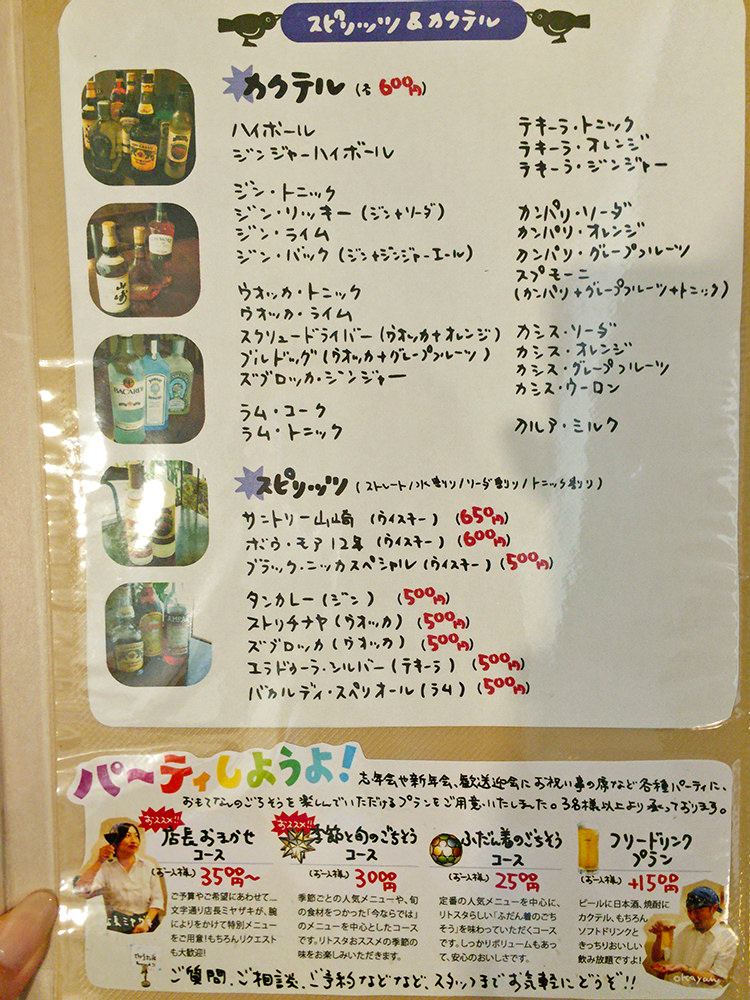 スピリッツ&カクテル
カクテル (各600円)
ハイボール
ジンジャーハイボール
ジン・トニック
ジン・リッキー(ジン+ソーダ)
ジン・ライム
ジン・バック(ジン+ジンジャーエール)
ウオッカ・トニック
ウオッカ・ライム
スクリュードライバー(ウオッカ+オレンジ)
ブルドッグ(ウオッカ+グレープフルーツ)
ズブロッカ・ジンジャー
ラム・コーク
ラム・トニック
テキーラ・トニック
テキーラ・オレンジ
テキーラ・ジンジャー
カンパリ・ソーダ
カンパリ・オレンジ
カンパリ・グレープフルーツ
スプモーニ
(カンパリ+グレープフルーツ+トニック)
カシス・ソーダ
カシス・オレンジ
カシス・グレープフルーツ
カシス・ウーロン
カルア・ミルク
スピリッツ (ストレート/水割り/ソーダ割り/トニック割り)
サントリー山崎 (ウイスキー) (650円)
ボウモア12年 (ウイスキー) (600円)
ブラック・ニッカスペシャル (ウイスキー) (500円)
タンカレー (ジン) (500円)
ストリチナヤ (ウオッカ) (500円)
ズブロッカ (ウオッカ) (500円)
エラドゥーラ・シルバー (テキーラ) (500円)
バカルディ・スペリオール (ラム) (500円)
山崎
BACARDI
パーティしようよ!
忘年会や新年会、歓送迎会にお祝い事の席など各種パーティに、
おもてなしのごちそうを楽しんでいただけるプランをご用意いたしました。3名様以上より承っております。
おススメ!!
店長おまかせ
コース
(お一人様) 3500円〜
ご予算やご希望にあわせて…
文字通り店長ミヤザキが、腕
によりをかけて特別メニュー
をご用意!もちろんリクエスト
も大歓迎!
おススメ!!
季節と旬のごちそう
コース
(お一人様) 3000円
季節ごとの人気メニューや、旬
の食材をつかった「今ならでは」
のメニューを中心としたコース
です。リトスタおススメの季節の
味をお楽しみいただきます。
ふだん着のごちそう
コース
(お一人様) 2500円
定番の人気メニューを中心に、
リトスタらしい「ふだん着のごち
そう」を味わっていただくコース
です。しっかりボリュームもあっ
て、安心のおいしさです。
フリードリンク
プラン
(お一人様) +1500円
ビールに日本酒、焼酎に
カクテル、もちろん
ソフトドリンクと
きっちりおいしい
飲み放題ですよ!
店長ミヤザキ
okayan
ご質問、ご相談、ご予約などなど、スタッフまでお気軽にどうぞ!!